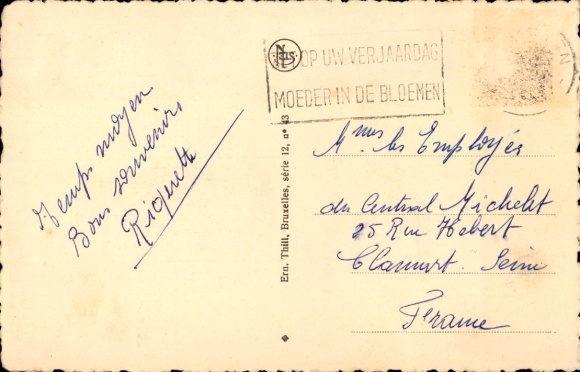 Temps moyen
Bons souvenirs
Riquette
Ern. Thill, Bruxelles, série 12, n° 43
OP UW VERJAARDAG
MOEDER IN DE BLOEMEN
Mmes les Employés
du Central Michelet
25 Rue Hébert
Clamart. Seine
France